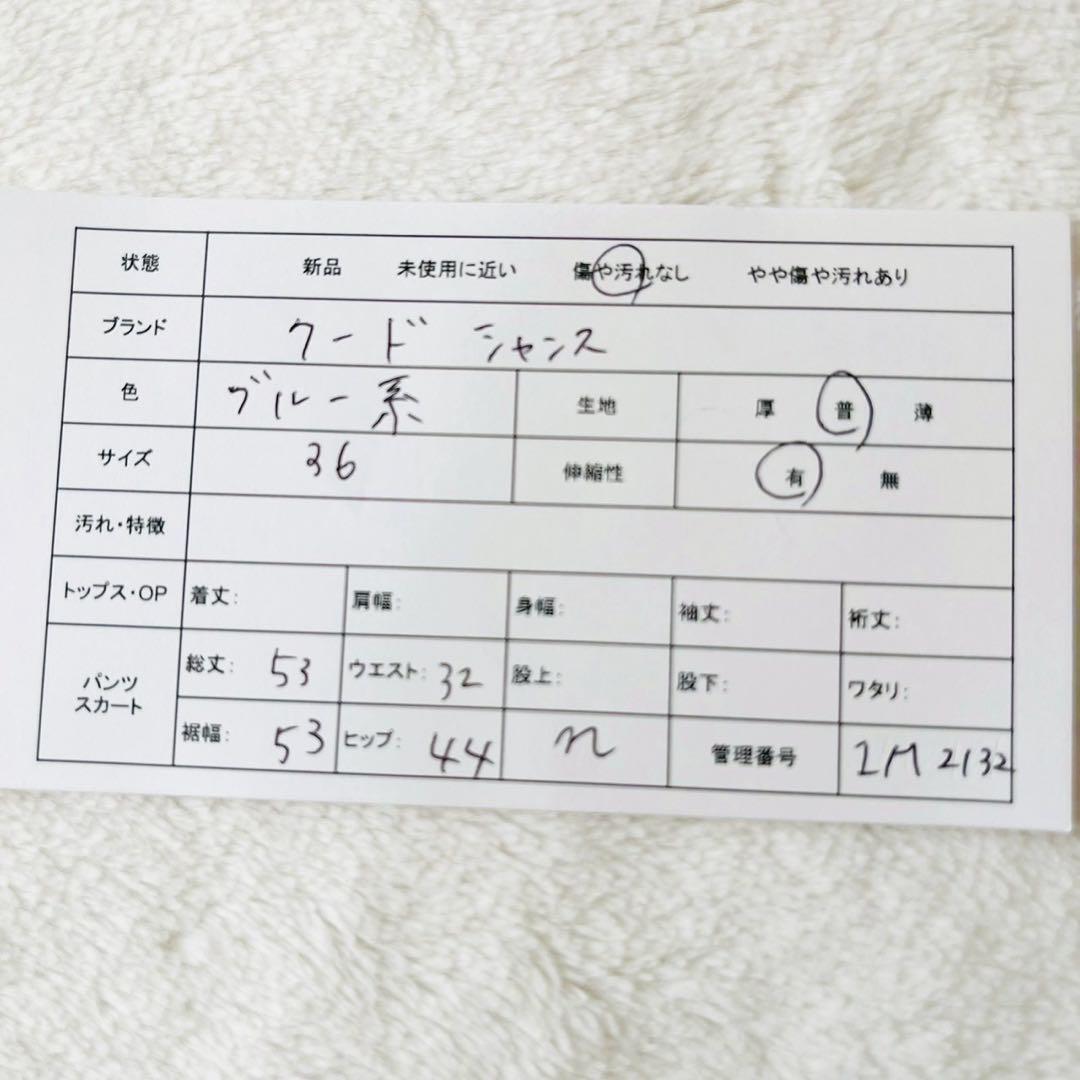 状態 新品 未使用に近い 傷や汚れなし やや傷や汚れあり
ブランド クード シャンス
色 ブルー系 生地 厚 普 薄
サイズ 36 伸縮性 有 無
汚れ・特徴
トップス・OP 着丈: 肩幅: 身幅: 袖丈: 裄丈:
パンツ スカート 総丈: 53 ウエスト: 32 股上: 股下: ワタリ:
裾幅: 53 ヒップ: 44 n 管理番号 LM2132